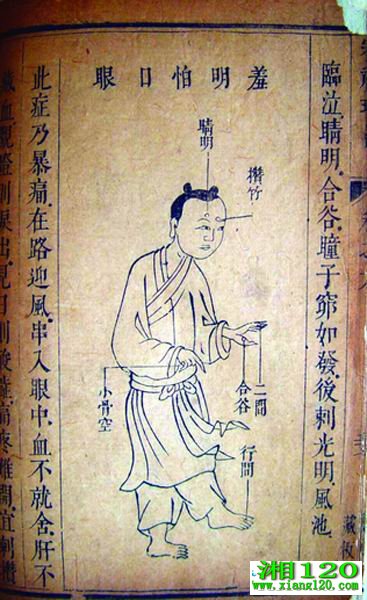 臨泣。睛明。合谷。瞳子窌。如發。後刺光明。風池
羞明怕日眼
睛明
攢竹
二間
合谷
行間
小骨空
此症乃暴痛。在路迎風。串入眼中。血不就舍。肝不
藏血
則淚出。見日則酸澁。痛疼難開。宜刺攢
藏板
湘120
www.xiang120.com